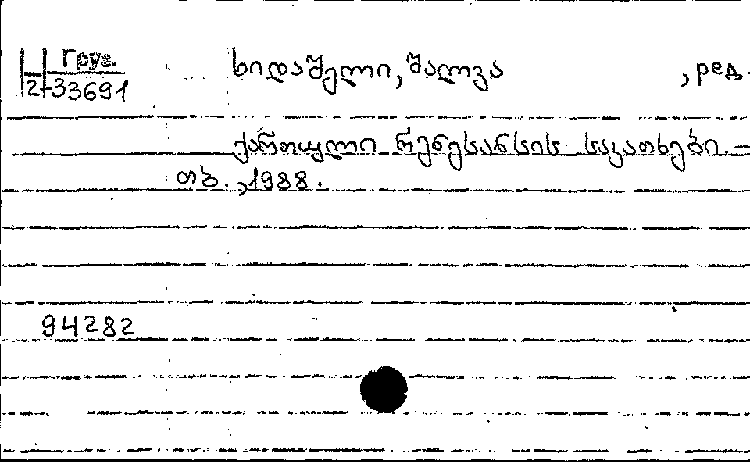 Груз.
2-33691
ხიდაშელი, შალვა , ред.
ქართული რენესანსის საკითხები. –
თბ., 1988.
94282